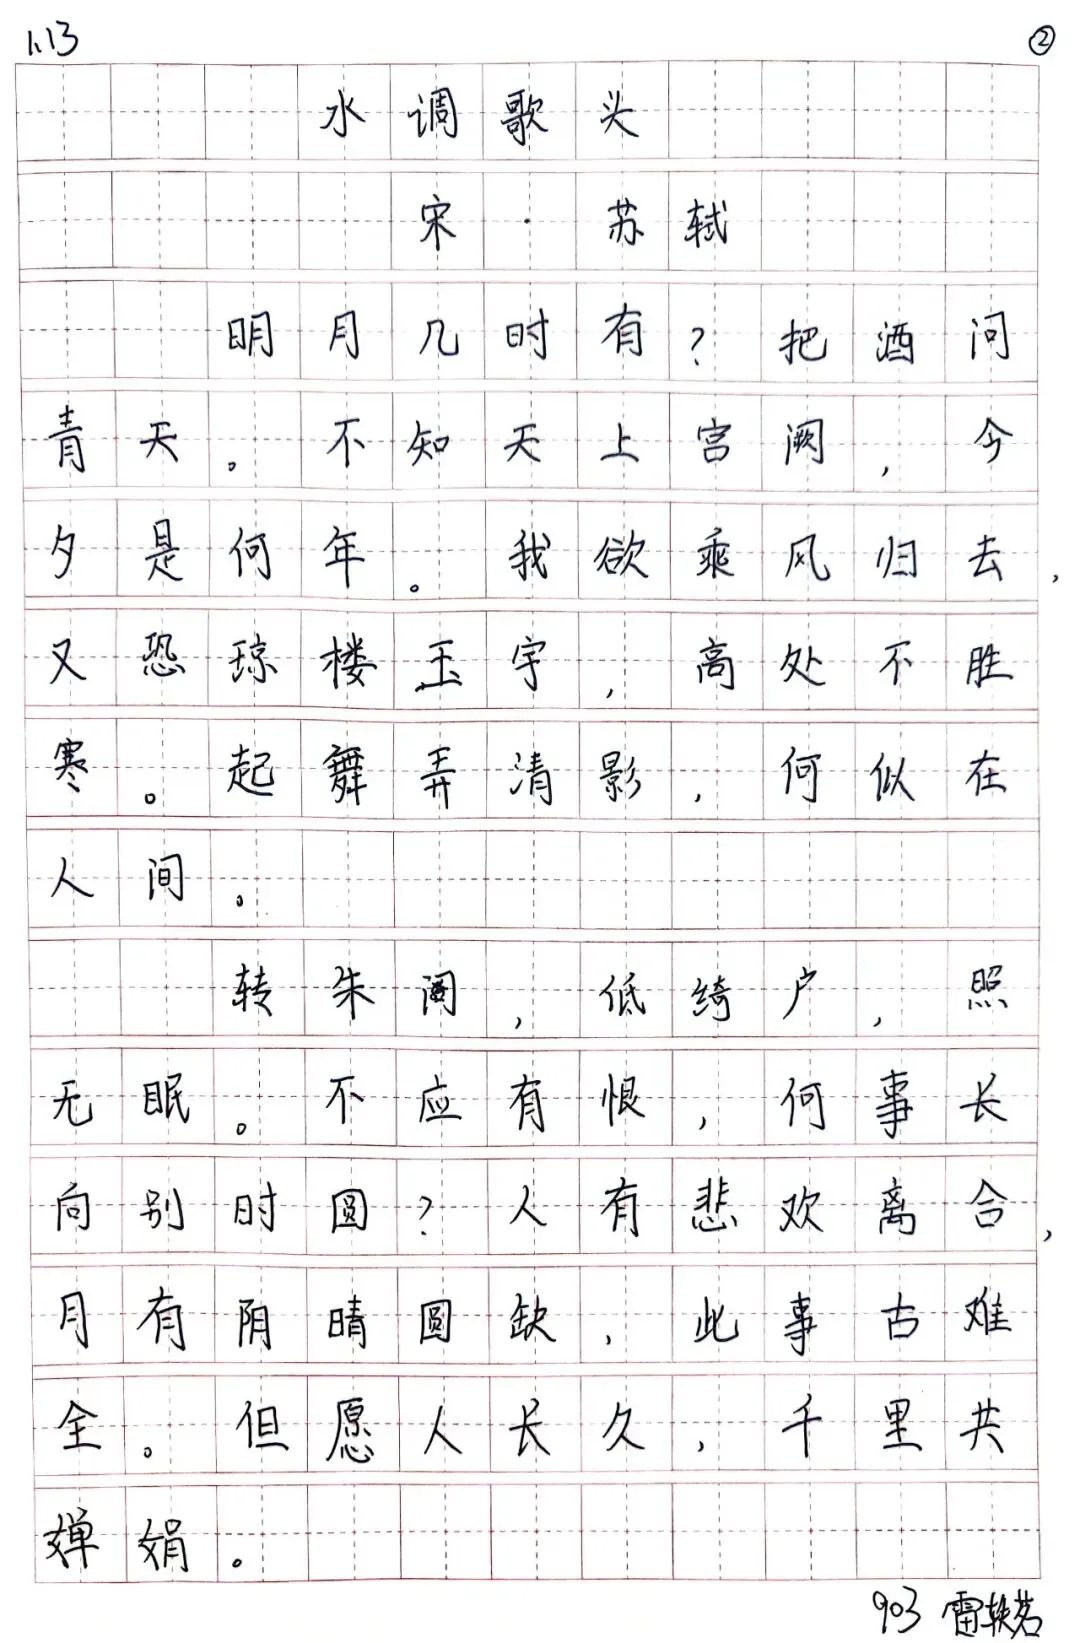 1.13 ②
水调歌头
宋·苏轼
明月几时有？把酒问
青天。不知天上宫阙，今
夕是何年。我欲乘风归去，
又恐琼楼玉宇，高处不胜
寒。起舞弄清影，何似在
人间。
转朱阁，低绮户，照
无眠。不应有恨，何事长
向别时圆？人有悲欢离合，
月有阴晴圆缺，此事古难
全。但愿人长久，千里共
婵娟。
903 雷轶茗